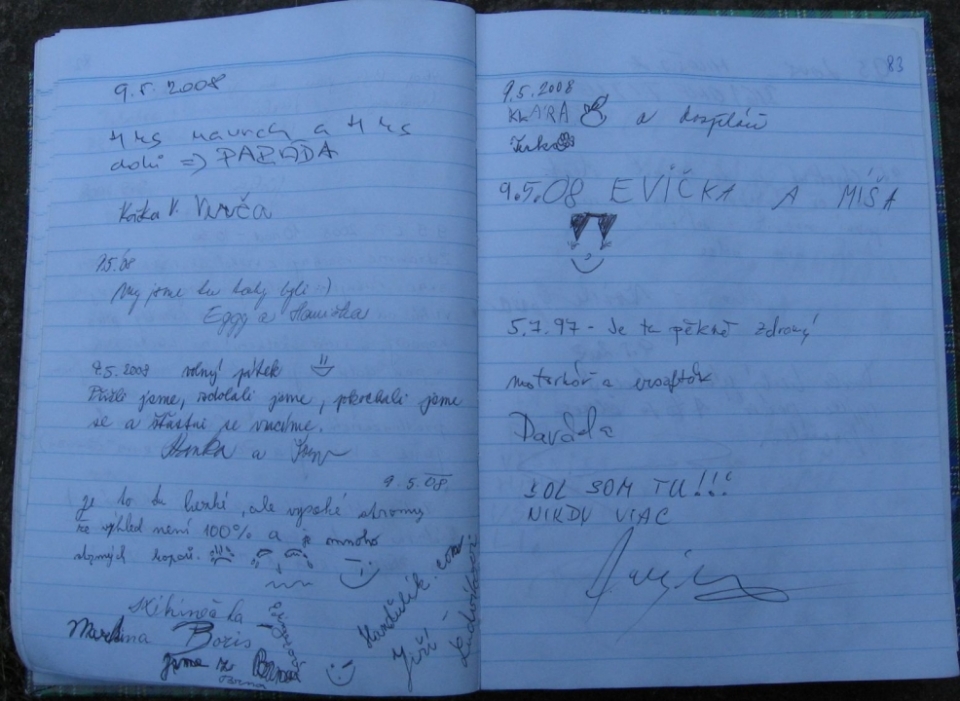 9.5. 2008
4 ks navrch a 4 ks
dolů => PARÁDA
Katka V. Verča
9.5.08
My jsme tu taky byli :)
Eggy a Hanička
9.5.2008 volný pátek
Došli jsme, zdolali jsme, pokochali jsme
se a šťastni se vracíme.
Lenka a
9.5.08.
je to tu hezké, ale vysoké stromy
že výhled není 100% a je mnoho
Martina Boris
jsme z Brna
Brno
Jiří
83
9.5.2008
KLÁRA a dospěláci
Terka
9.5.08 EVIČKA A MÍŠA
5.7.97 - Je tu pěkně zdravý
motorkář a
Davada
BOL SOM TU!!!
NIKDY VIAC